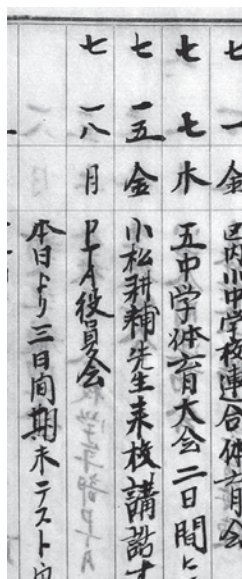 七 一 金 区内小中学校連合体育会
七 七 木 五中学体育大会二日間に
七 一五 金 小松耕輔先生来校講話す
七 一八 月 PTA役員会
本日より三日間期末テスト